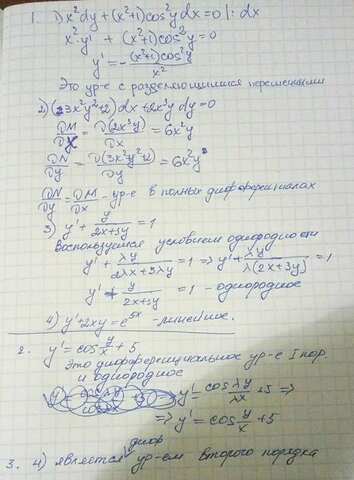 1. 1) x²dy+(x²+1)cos²y dx=0 |: dx
x²·y' + (x²+1)cos²y=0
y'= -(x²+1)cos²y/x²
Это ур-е с разделяющимися переменными
2) (3x²y²+2)dx+2x³y dy=0
∂M/∂x = ∂(2x³y)/∂x = 6x²y
∂N/∂y = ∂(3x²y²+2)/∂y = 6x²y
∂N/∂y = ∂M/∂x - ур-е в полных дифференциалах
3) y'+ y/(2x+3y) =1
Воспользуемся условием однородности
y'+ λy/(2λx+3λy) =1 => y'+ λy/(λ(2x+3y)) =1
y'+ y/(2x+3y) =1 - однородное
4) y'+2xy=e^5x - линейное.
2. y'=cos y/x +5
Это дифференциальное ур-е I пор.
и однородное
y'= cos λy/λx +5 =>
=> y'=cos y/x +5
3. 4) является диф ур-ем второго порядка